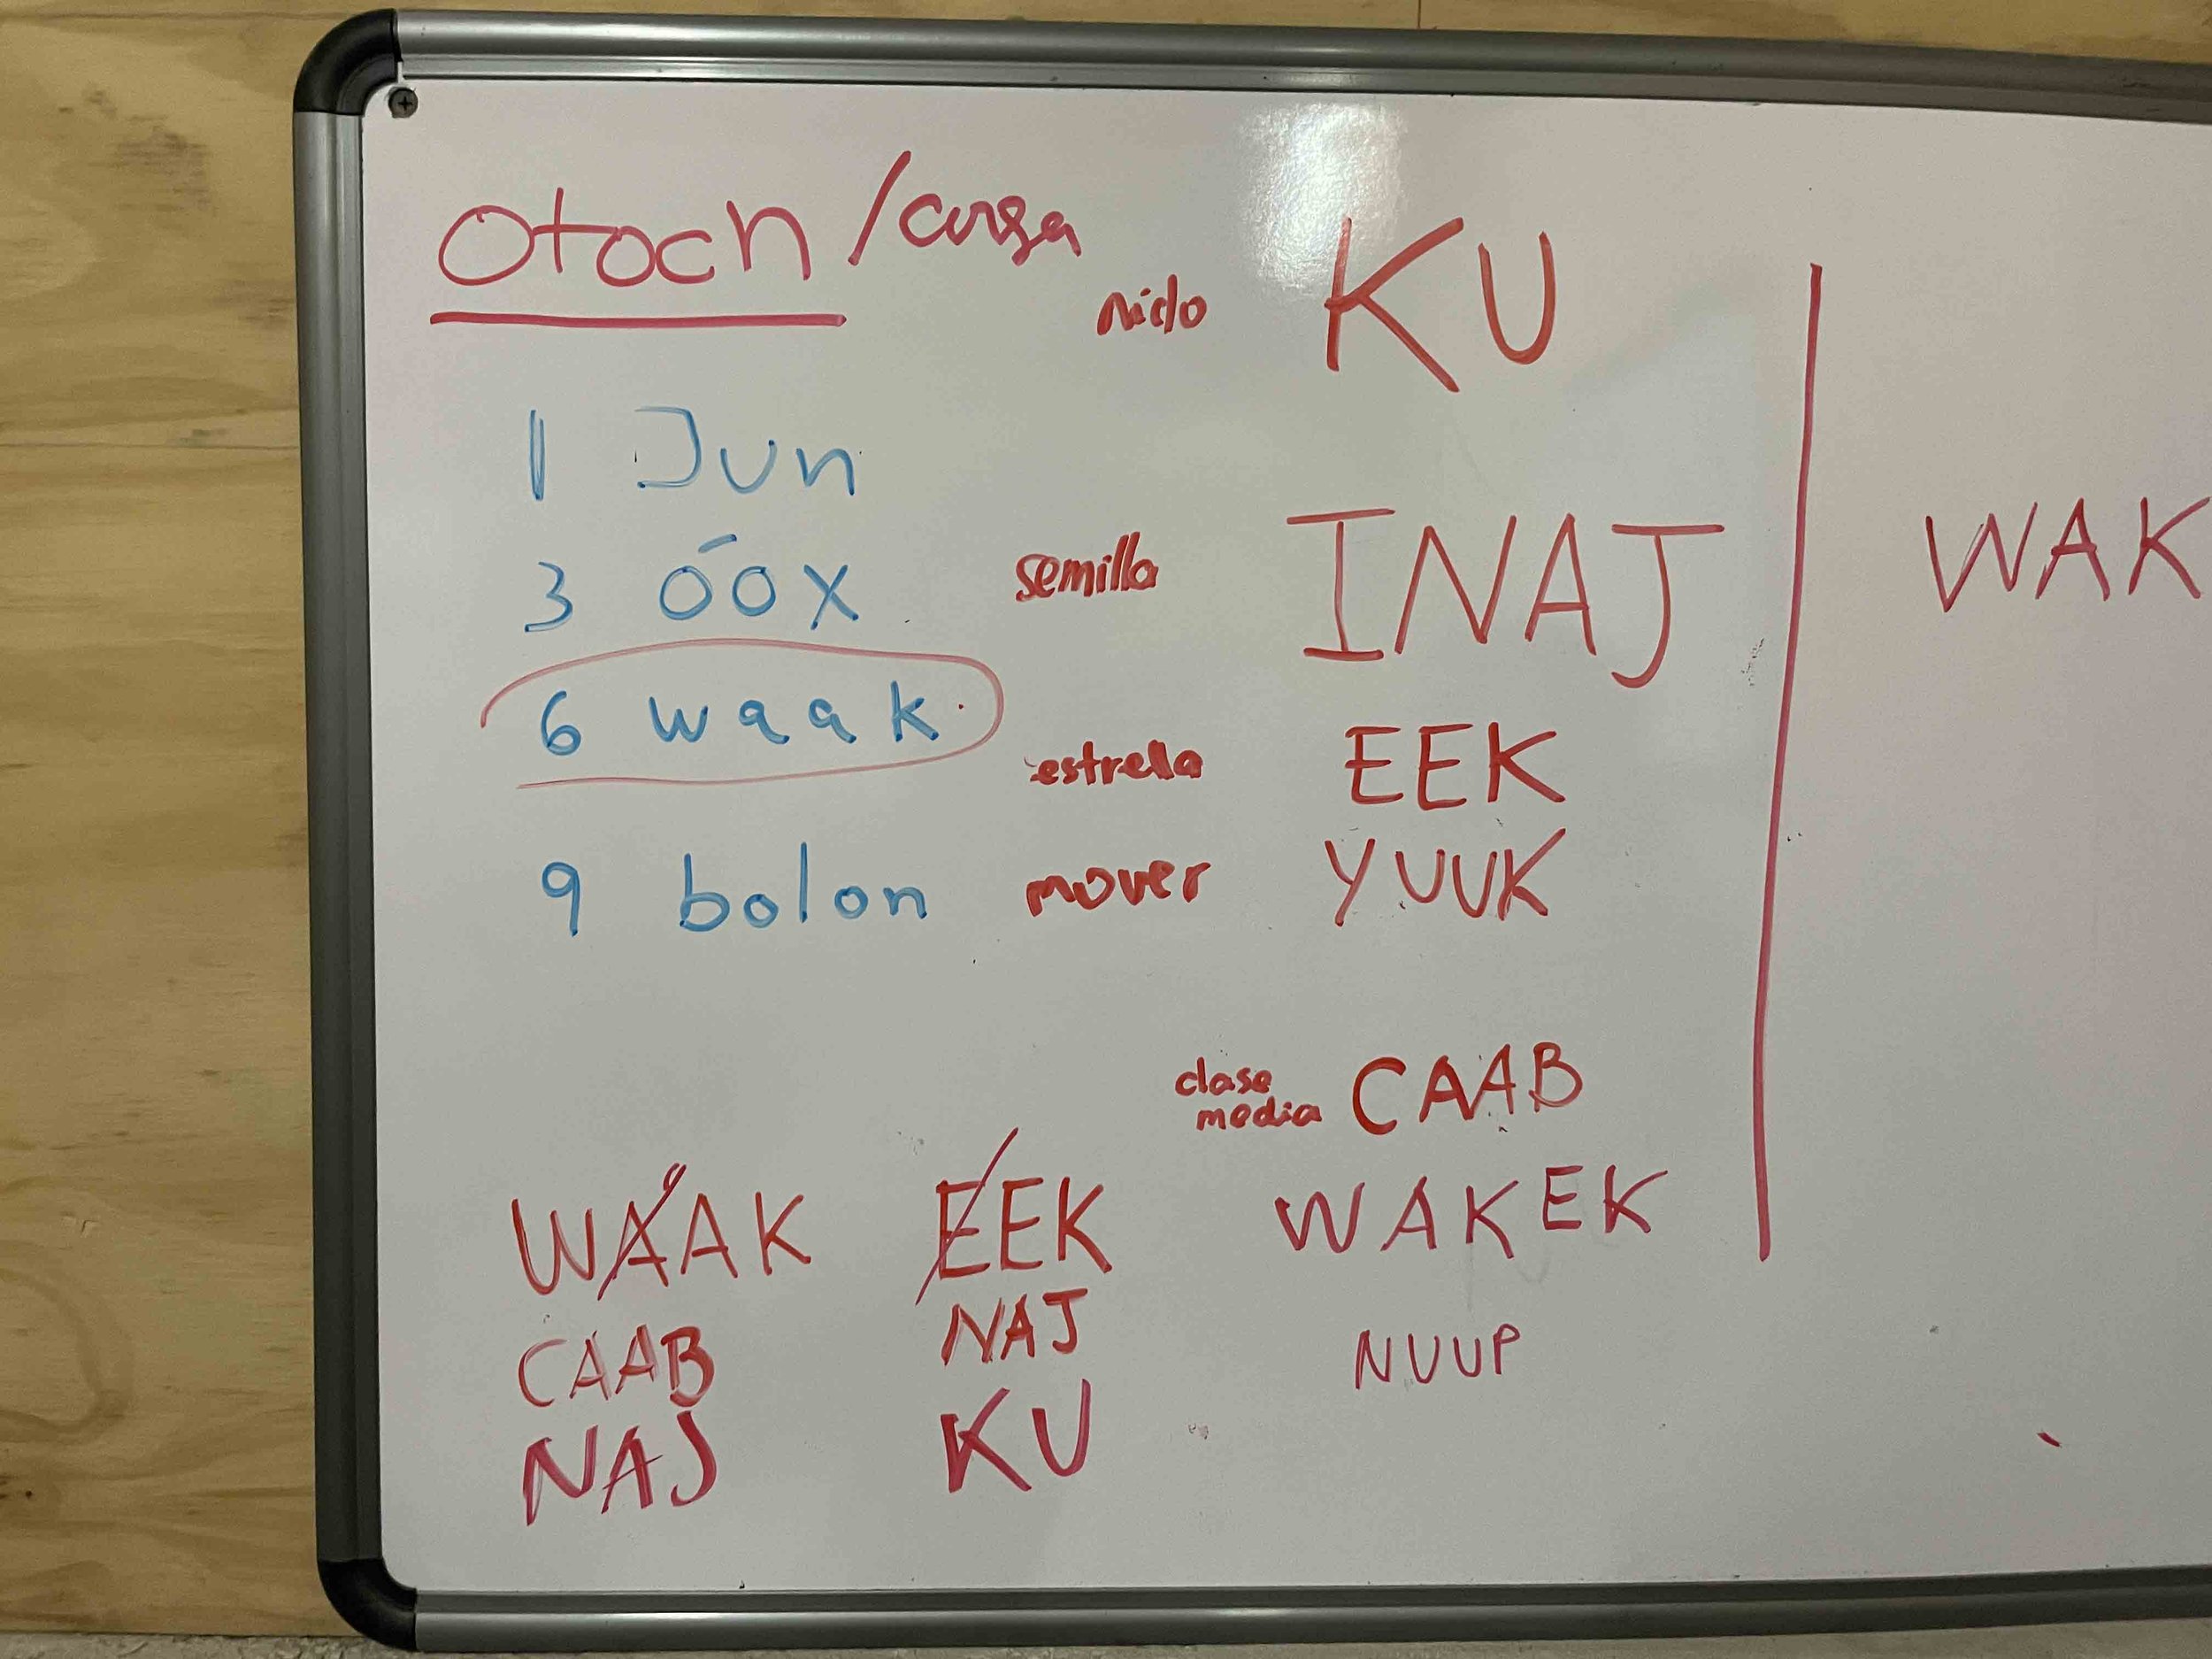 Otoch /carga
nido KU
1 Jun
3 óox
semilla INAJ
6 waak
estrella EEK
9 bolon
mover YUUK
clase media CAAB
WAAK EEK WAKEK
CAAB NAJ NUUP
NAJ KU
WAK